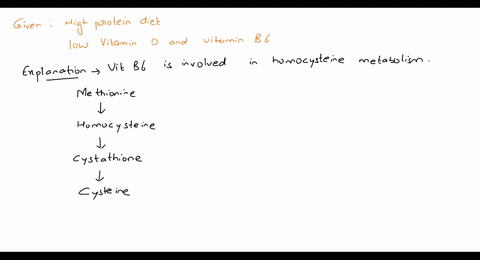 Given : High protein diet
low Vitamin D and vitamin B6
Explanation → Vit B6 is involved in homocysteine metabolism.
Methionine
↓
Homocysteine
↓
Cystathione
↓
Cysteine